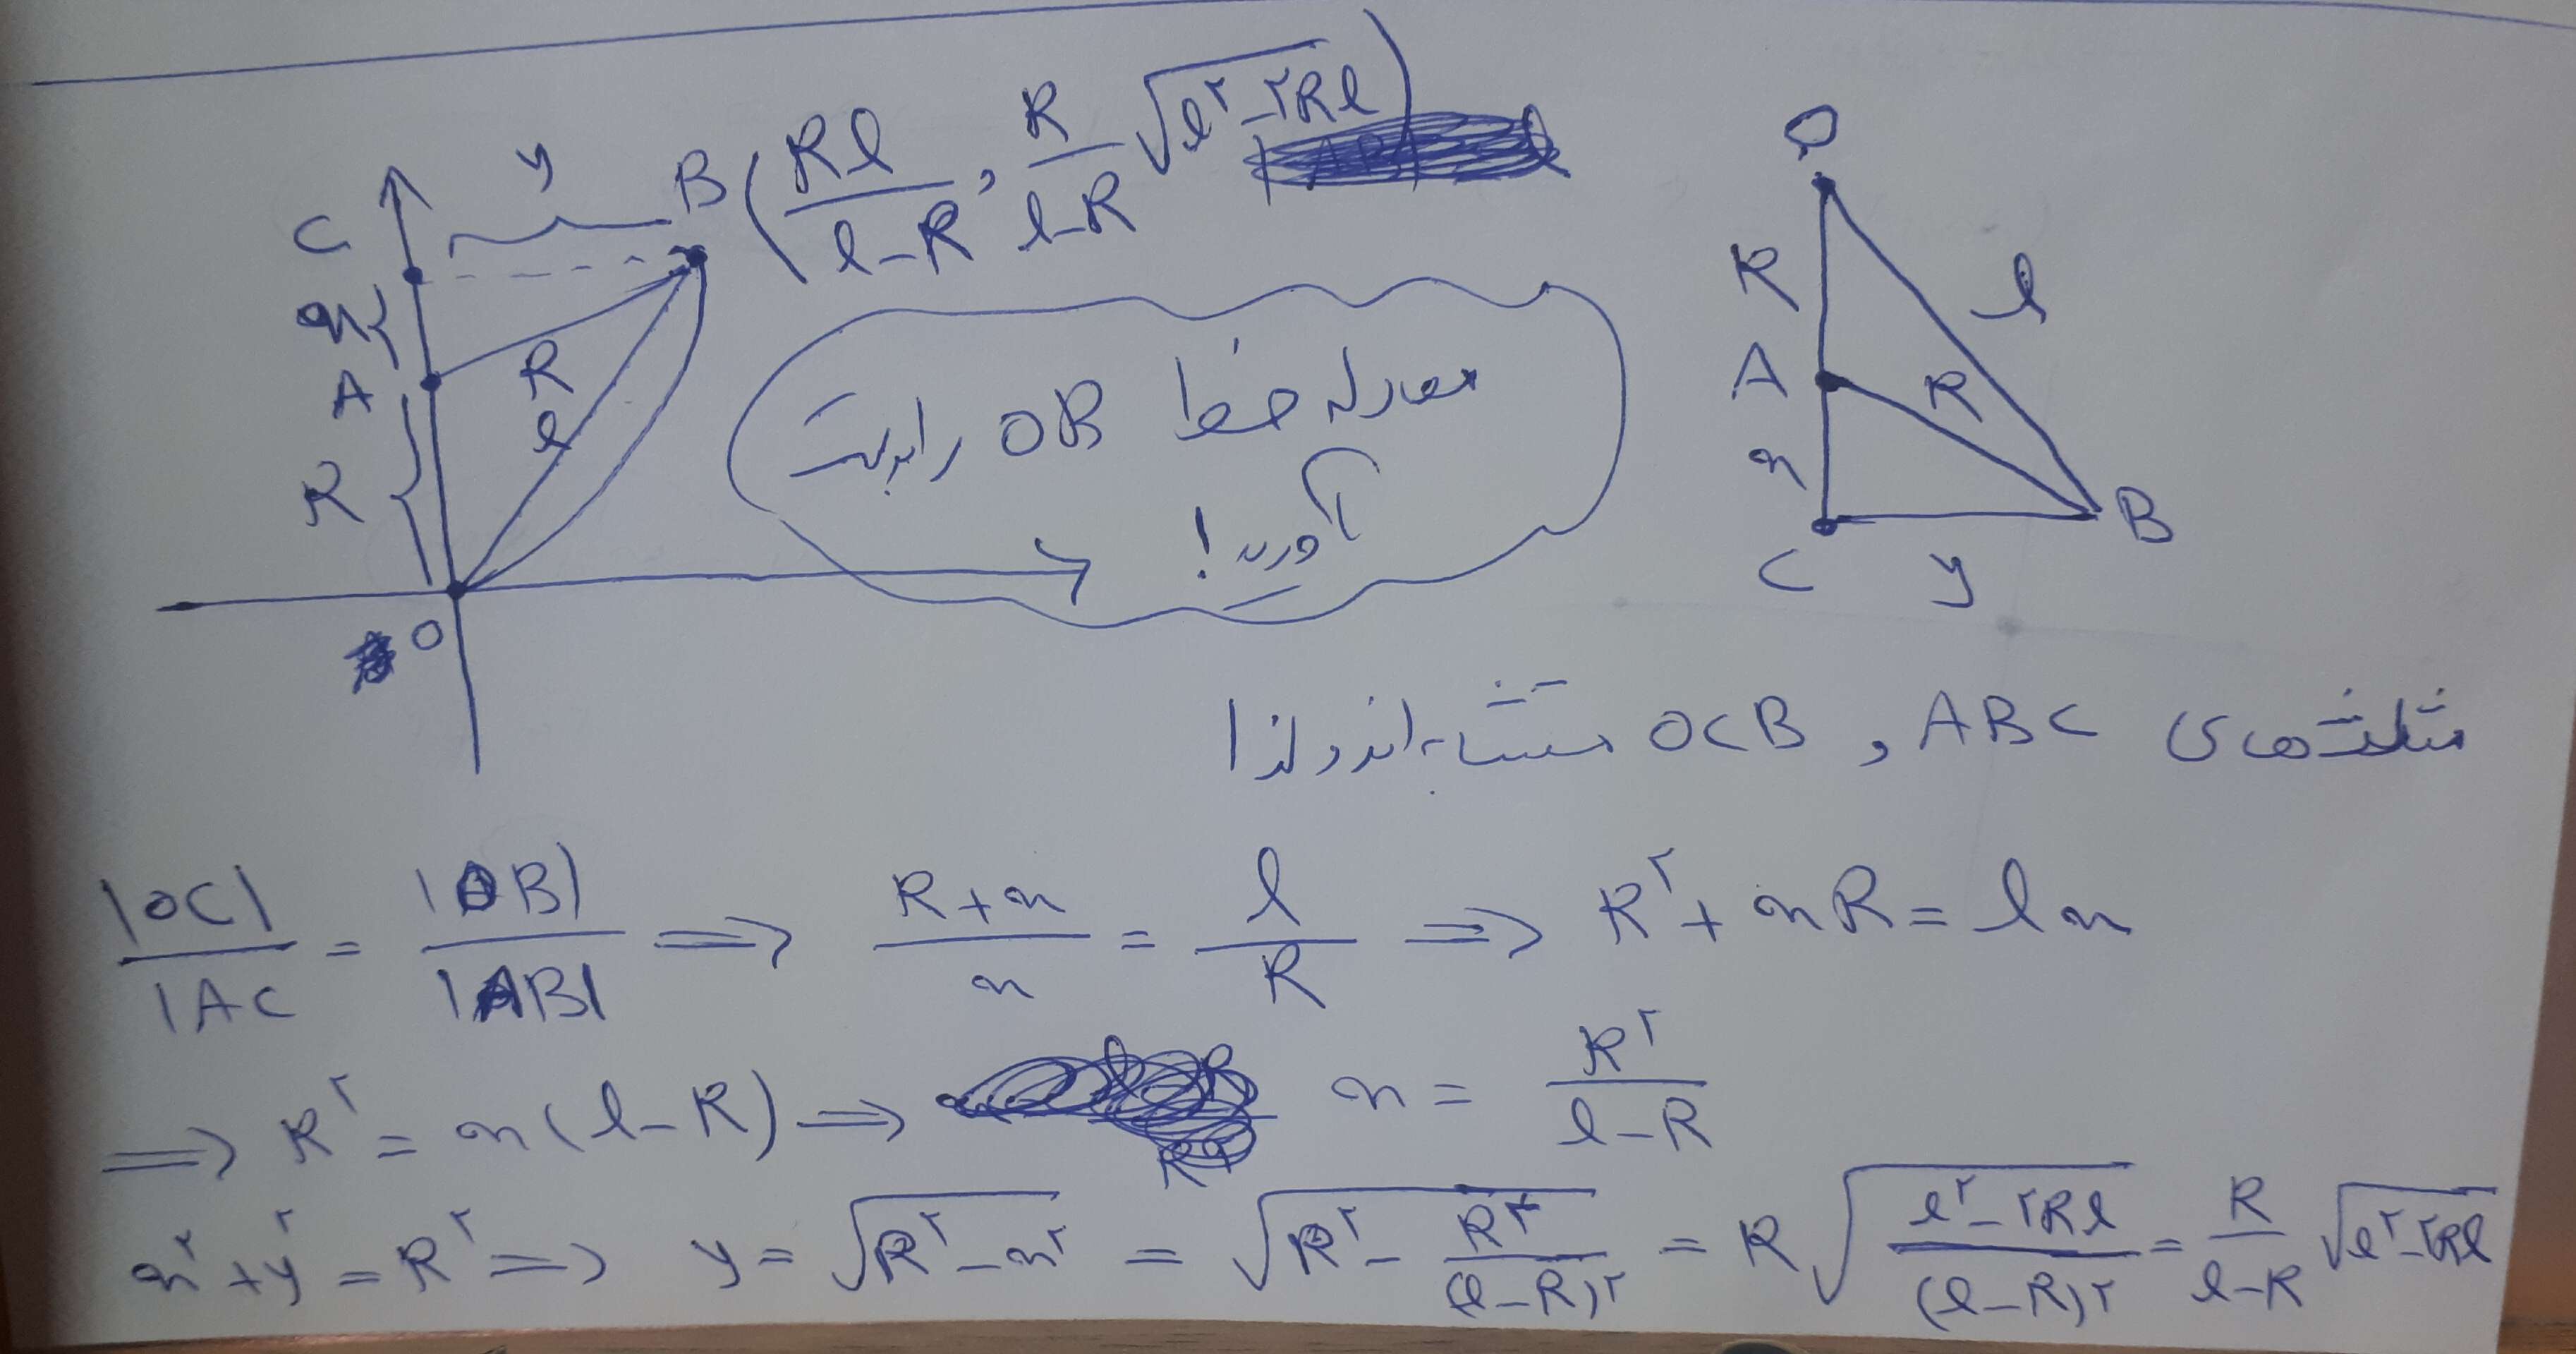 B (Rl / l-R , R / l-R √(l^۲ - ۲Rl))
y
C
x
A
R
R
l
O
معادله خط OB را بدست
آورید!
O
R
l
A
R
x
C
y
B
مثلث‌های ABC و OCB متشابه‌اند و لذا
|OC| / |AC = |OB| / |AB| ⟹ R+x / x = l / R ⟹ R^۲ + xR = lx
⟹ R^۲ = x(l-R) ⟹ x = R^۲ / l-R
x^۲ + y^۲ = R^۲ ⟹ y = √(R^۲ - x^۲) = √(R^۲ - R^۴ / (l-R)^۲) = R √(l^۲ - ۲Rl / (l-R)^۲) = R / l-R √(l^۲ - ۲Rl)